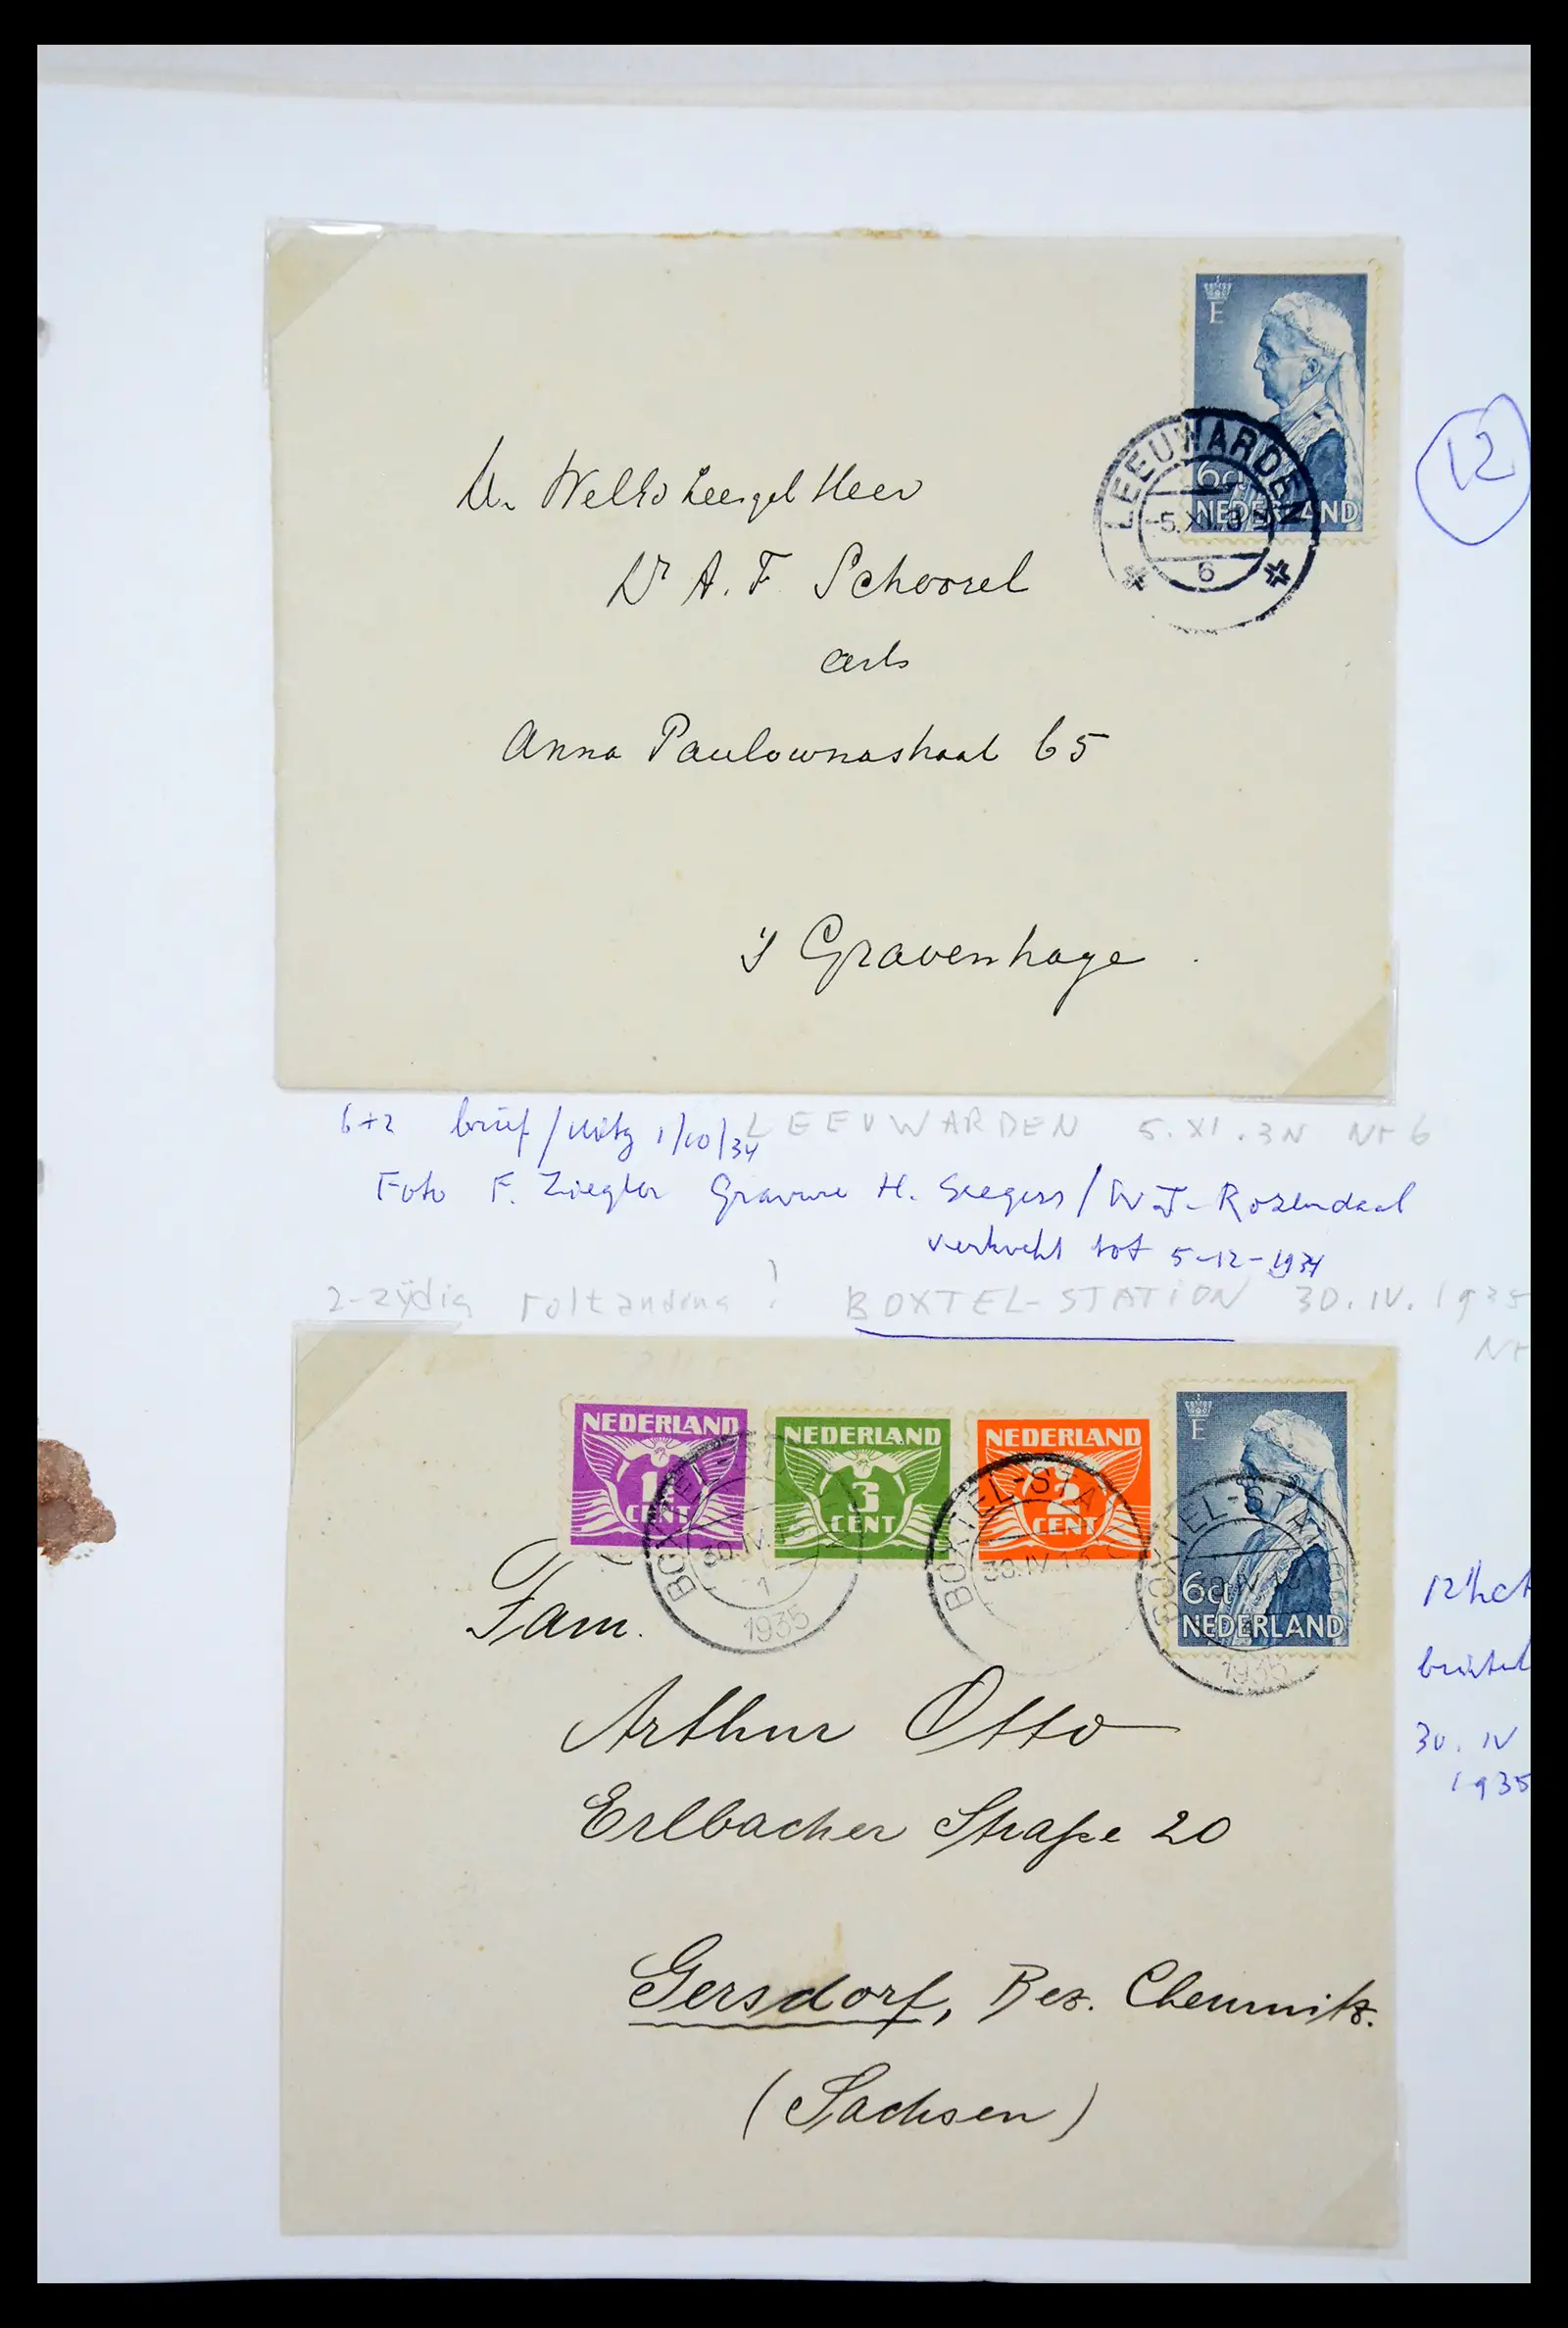 E
6ct
NEDERLAND
LEEUWARDEN
5.XI.3
6
12
Dr A. F. Schoorel
arts
Anna Paulownastraat 65
's Gravenhage
6+2 brief / 1/10/34 LEEUWARDEN 5.XI.3N Nr 6
Foto F. Ziegler Gravure H. Seegers / W J. Rozendaal
verkocht tot 5-12-1934
2-zÿdig roltanding ? BOXTEL-STATION 30.IV.1935
Nr
NEDERLAND
1½
CENT
NEDERLAND
3
CENT
NEDERLAND
2
CENT
E
6ct
NEDERLAND
BOXTEL-STA
30.IV.
1
1935
BOXTEL-STA
30.IV.13
BOXTEL-STA
1935
Fam.
Arthur Otto
Erlbacher Straße 20
Gersdorf, Bez. Chemnitz.
(Sachsen)
12½ct
30. IV
1935